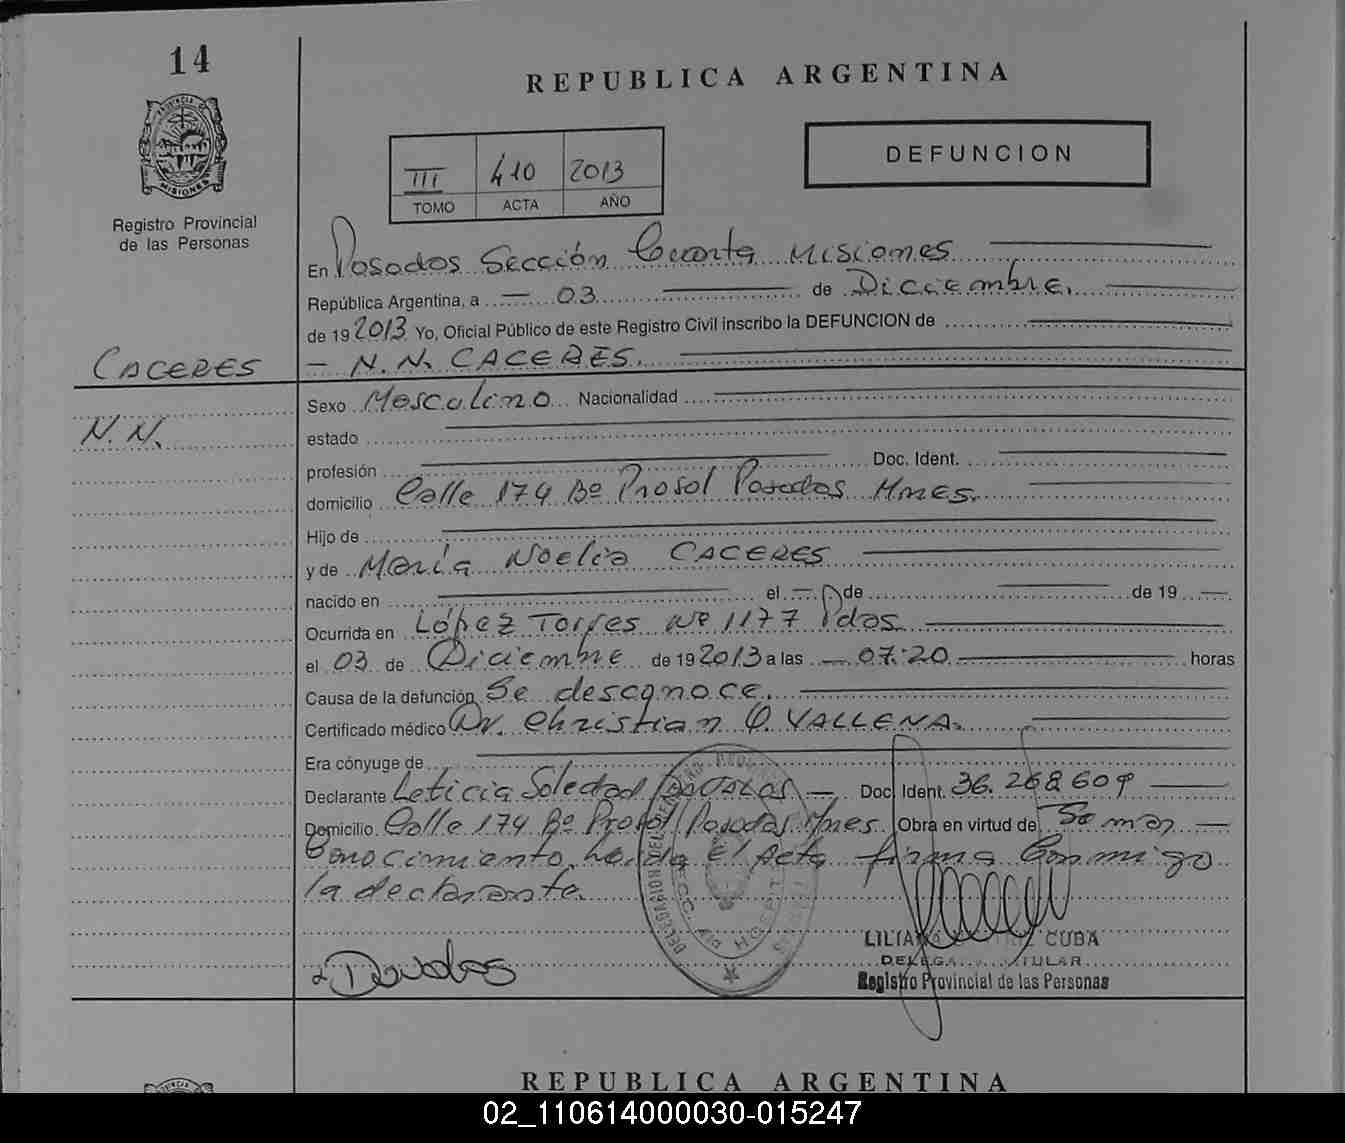 14
REPUBLICA ARGENTINA
DEFUNCION
III 410 2013
TOMO ACTA AÑO
PROVINCIA DE MISIONES
Registro Provincial
de las Personas
En Posadas Sección Cuarta Misiones
República Argentina, a 03 de Diciembre.
de 19 2013 Yo, Oficial Público de este Registro Civil inscribo la DEFUNCION de
CACERES
N.N. CACERES.
N.N.
Sexo Masculino Nacionalidad
estado
profesión Doc. Ident.
domicilio Calle 174 Bº Prosol Posadas Mnes.
Hijo de
y de María Noelia CACERES
nacido en el de de 19
Ocurrida en López Torres Nº 1177 Pdas
el 03 de Diciembre de 19 2013 a las 07:20 horas
Causa de la defunción Se desconoce.
Certificado médico Dr. Christian O. VALLENA.
Era cónyuge de
Declarante Leticia Soledad Doc. Ident. 36.268.609
Domicilio Calle 174 Bº Prosol Posadas Mnes Obra en virtud de Su mar
Conocimiento, Leida El Acta firma Conmigo
la declarante.
LILIANA CUBA
DELEGADA TITULAR
Registro Provincial de las Personas
REPUBLICA ARGENTINA
02_110614000030-015247